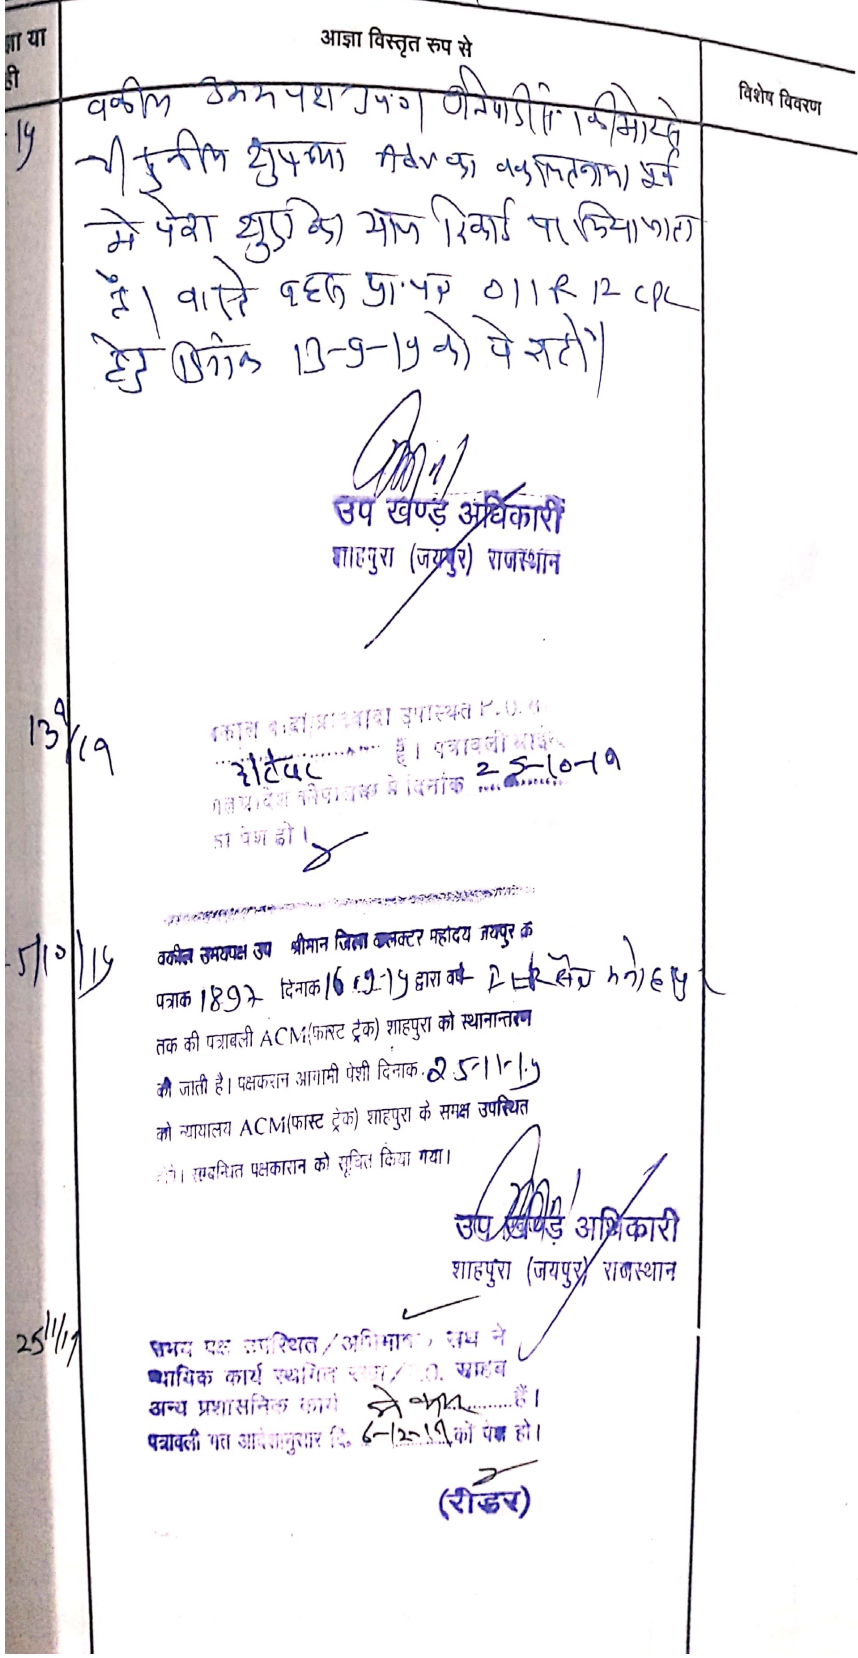 ज्ञा या
ही
आज्ञा विस्तृत रुप से
विशेष विवरण
वकील उभयपक्ष उप०।
का वकालतनामा पूर्व
मे पेश हुए को आज रिकार्ड पर लिया जाता
है। वास्ते बहस प्रा.पत्र 011 R 12 CPC
हेतु दिनांक 13-9-19 को पेश हो।
उप खण्ड अधिकारी
शाहपुरा (जयपुर) राजस्थान
13/9/19
उपस्थित P.O.
है। पत्रावली
मे दिनांक 25-10-19
को पेश हो।
5/10/19
वकील उभयपक्ष उप श्रीमान जिला कलक्टर महोदय जयपुर के
पत्राक 1897 दिनाक 16.9.19 द्वारा
तक की पत्रावली ACM(फास्ट ट्रेक) शाहपुरा को स्थानान्तरण
की जाती है। पक्षकरान आगामी पेशी दिनाक. 25-11-19
को न्यायालय ACM(फास्ट ट्रेक) शाहपुरा के समक्ष उपस्थित
सम्बन्धित पक्षकारान को सूचित किया गया।
उप खण्ड अधिकारी
शाहपुरा (जयपुर) राजस्थान
25/11/19
उभय पक्ष उपस्थित/ संघ ने
न्यायिक कार्य स्थगित साहब
अन्य प्रशासनिक कार्य मे व्यस्त है।
पत्रावली गत आदेशानुसार दि. 6-12-19 को पेश हो।
(रीडर)